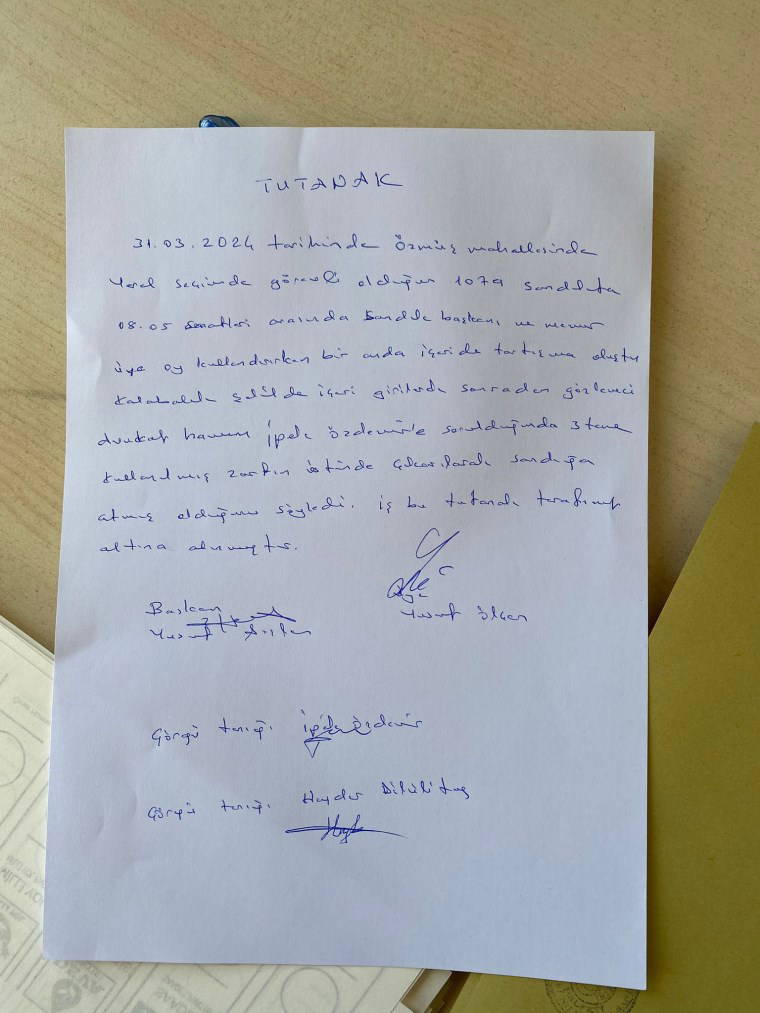 TUTANAK
31.03.2024 tarihinde Özmüş mahallesinde
Yerel seçimde görevli olduğum 1079 sandıkta
08.05 saatleri arasında Sandık başkanı ve memur
üye oy kullandırırken bir anda içeride tartışma oluştu
Kalabalık şekilde içeri girilerek sonradan gözlemci
avukat hanım İpek Özdemir'e sorulduğunda 3 tane
kullanılmış zarfın üstünde çıkarılarak sandığa
atmış olduğunu söyledi. iş bu tutanak tarafımıza
altına alınmıştır.
Başkan
Yusuf
Yusuf
Görgü tanığı İpek Özdemir
Görgü tanığı Haydar Dikilitaş